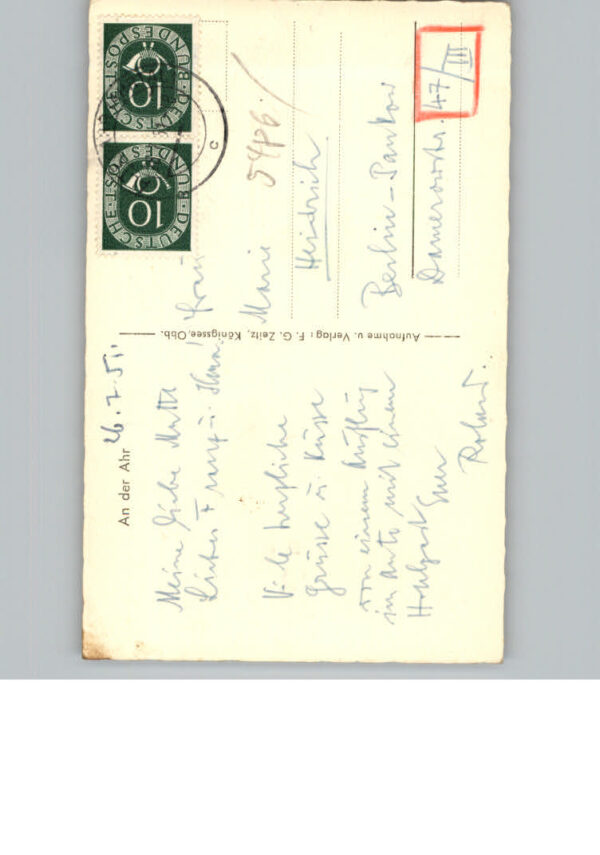 An der Ahr 26.7.51.
Meine liebe Mutti
Lieber Franz u.
Viele herzliche
Grüsse u. Küsse
von einem Ausflug
im Auto mit einem
Euer
Roland.
Aufnahme u. Verlag: F. G. Zeitz, Königssee, Obb.
DEUTSCHE BUNDESPOST
10
DEUTSCHE BUNDESPOST
10
c
Frau
Marie
Heidrich
Berlin-Pankow
Damerowstr. 47/III